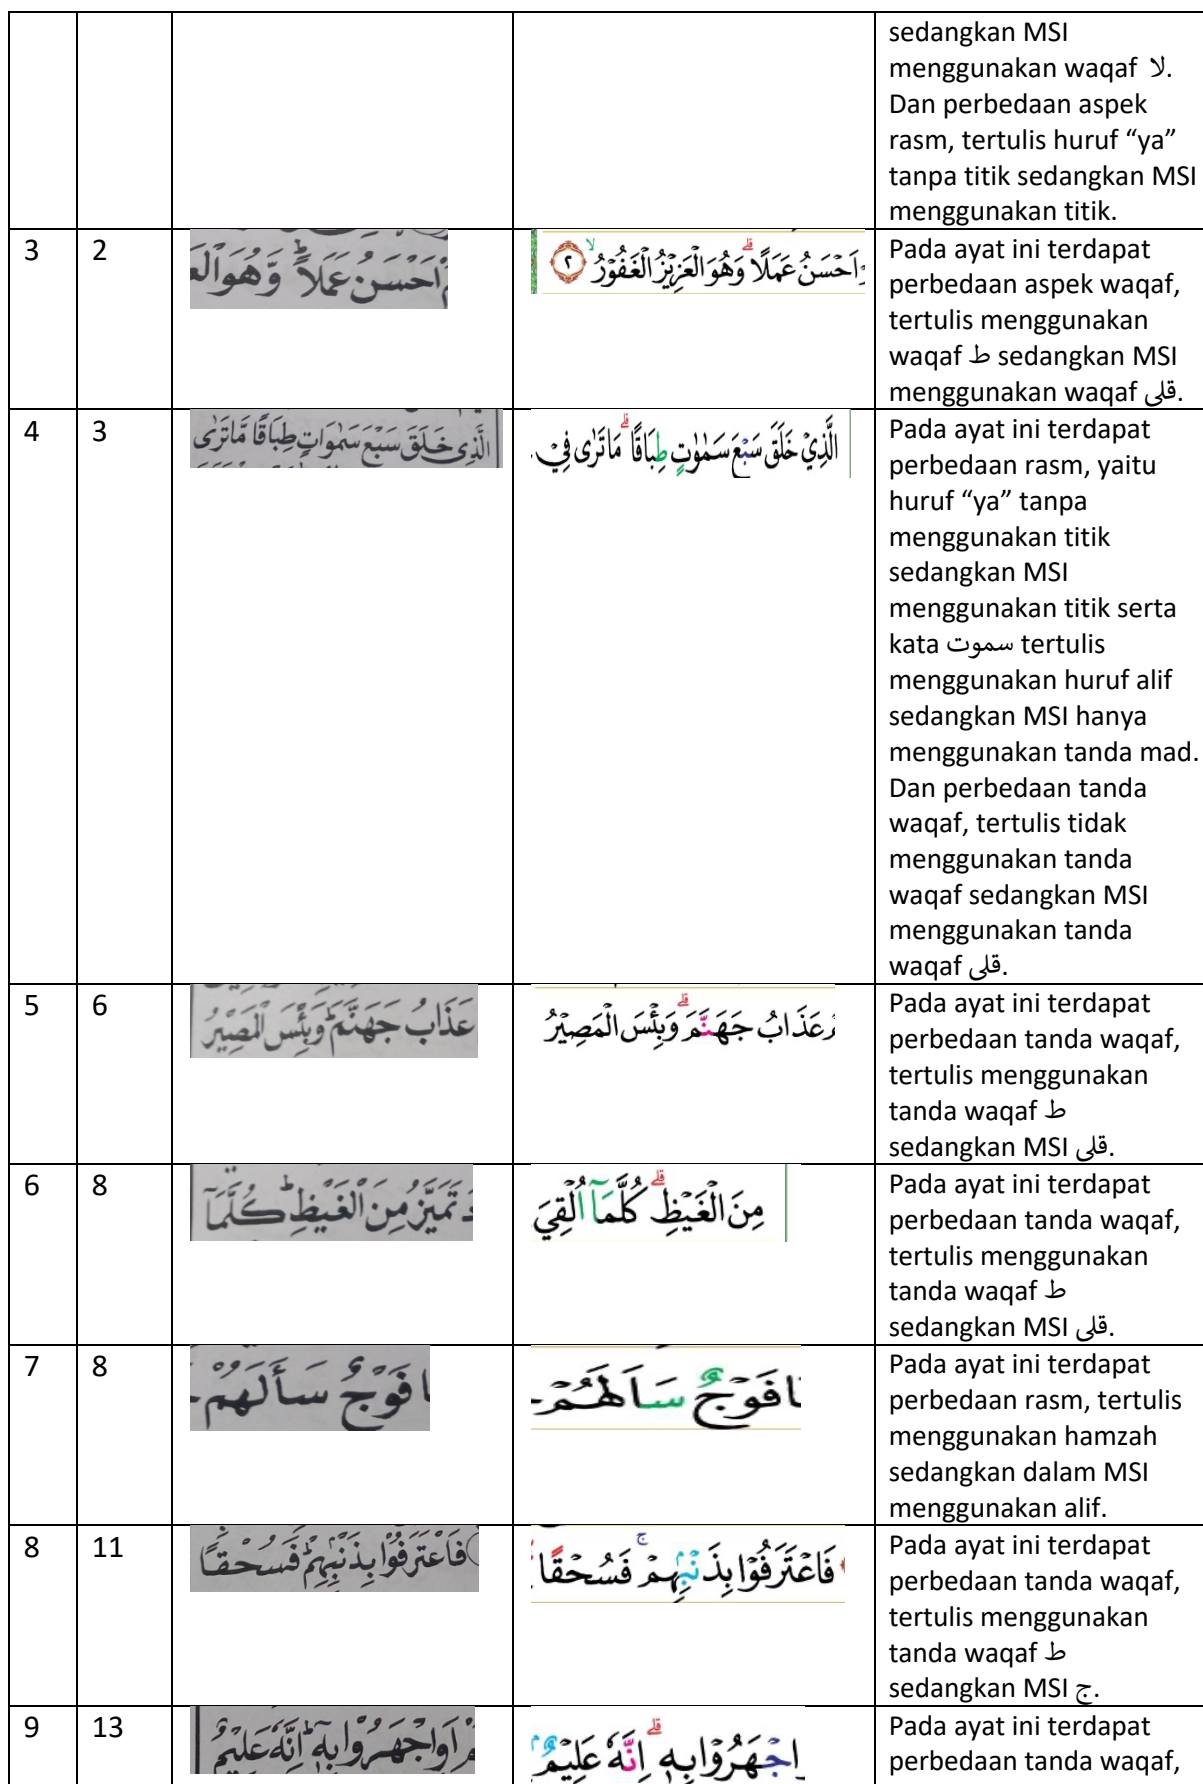 sedangkan MSI
menggunakan waqaf لا.
Dan perbedaan aspek
rasm, tertulis huruf “ya”
tanpa titik sedangkan MSI
menggunakan titik.
3 2 اَحْسَنُ عَمَلًاۗ وَّهُوَالْعَ اَحْسَنُ عَمَلًاۗ وَهُوَ الْعَزِيْزُ الْغَفُوْرُۙ ٢ Pada ayat ini terdapat
perbedaan aspek waqaf,
tertulis menggunakan
waqaf ط sedangkan MSI
menggunakan waqaf قلى.
4 3 الَّذِى خَلَقَ سَبْعَ سَمٰوَاتٍ طِبَاقًا مَّاتَرٰى الَّذِيْ خَلَقَ سَبْعَ سَمٰوٰتٍ طِبَاقًاۗ مَاتَرٰى فِيْ Pada ayat ini terdapat
perbedaan rasm, yaitu
huruf “ya” tanpa
menggunakan titik
sedangkan MSI
menggunakan titik serta
kata سموت tertulis
menggunakan huruf alif
sedangkan MSI hanya
menggunakan tanda mad.
Dan perbedaan tanda
waqaf, tertulis tidak
menggunakan tanda
waqaf sedangkan MSI
menggunakan tanda
waqaf قلى.
5 6 عَذَابُ جَهَنَّمَؕ وَبِئْسَ الْمَصِيْرُ عَذَابُ جَهَنَّمَۗ وَبِئْسَ الْمَصِيْرُ Pada ayat ini terdapat
perbedaan tanda waqaf,
tertulis menggunakan
tanda waqaf ط
sedangkan MSI قلى.
6 8 تَمَيَّزُ مِنَ الْغَيْظِؕ كُلَّمَآ مِنَ الْغَيْظِۗ كُلَّمَآ اُلْقِيَ Pada ayat ini terdapat
perbedaan tanda waqaf,
tertulis menggunakan
tanda waqaf ط
sedangkan MSI قلى.
7 8 فَوْجٌ سَأَلَهُمْ فَوْجٌ سَاَلَهُمْ Pada ayat ini terdapat
perbedaan rasm, tertulis
menggunakan hamzah
sedangkan dalam MSI
menggunakan alif.
8 11 فَاعْتَرَفُوْا بِذَنْۢبِهِمْؕ فَسُحْقًا فَاعْتَرَفُوْا بِذَنْۢبِهِمْۚ فَسُحْقًا Pada ayat ini terdapat
perbedaan tanda waqaf,
tertulis menggunakan
tanda waqaf ط
sedangkan MSI ج.
9 13 اَوِاجْهَرُوْا بِهٖؕ اِنَّهٗ عَلِيْمٌ اجْهَرُوْا بِهٖۗ اِنَّهٗ عَلِيْمٌ Pada ayat ini terdapat
perbedaan tanda waqaf,